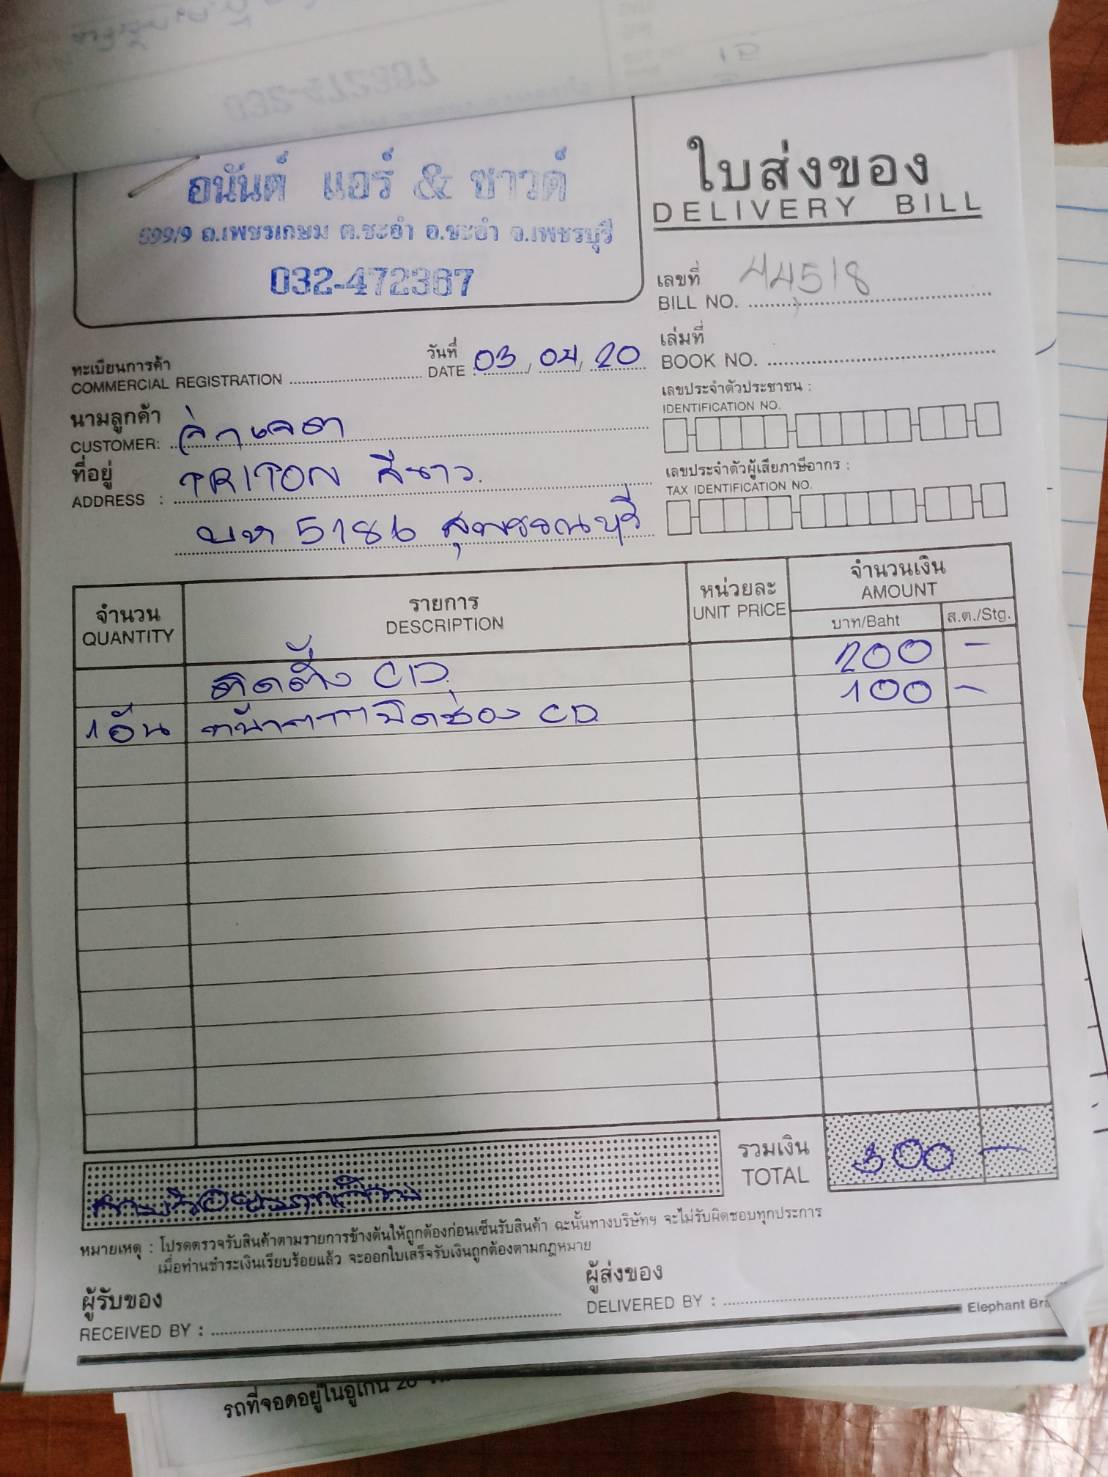 อนันต์ แอร์ & ซาวด์
599/9 ถ.เพชรเกษม ต.ชะอำ อ.ชะอำ จ.เพชรบุรี
032-472367
ใบส่งของ
DELIVERY BILL
เลขที่
BILL NO. 44518
เล่มที่
BOOK NO.
ทะเบียนการค้า
COMMERCIAL REGISTRATION
วันที่
DATE : 03, 04, 20
เลขประจำตัวประชาชน :
IDENTIFICATION NO.
นามลูกค้า
CUSTOMER:
ที่อยู่
ADDRESS : TRITON สีขาว.
บท 5186 สุพรรณบุรี
เลขประจำตัวผู้เสียภาษีอากร :
TAX IDENTIFICATION NO.
จำนวน
QUANTITY
รายการ
DESCRIPTION
หน่วยละ
UNIT PRICE
จำนวนเงิน
AMOUNT
บาท/Baht ส.ต./Stg.
ติดตั้ง CD. 200 -
1 อัน หน้ากากปิดช่อง CD 100 -
สามร้อยบาทถ้วน
รวมเงิน
TOTAL
300 -
หมายเหตุ : โปรดตรวจรับสินค้าตามรายการข้างต้นให้ถูกต้องก่อนเซ็นรับสินค้า ฉะนั้นทางบริษัทฯ จะไม่รับผิดชอบทุกประการ
เมื่อท่านชำระเงินเรียบร้อยแล้ว จะออกใบเสร็จรับเงินถูกต้องตามกฎหมาย
ผู้รับของ
RECEIVED BY :
ผู้ส่งของ
DELIVERED BY :
Elephant
รถที่จอดอยู่ในอู่เกิน 20